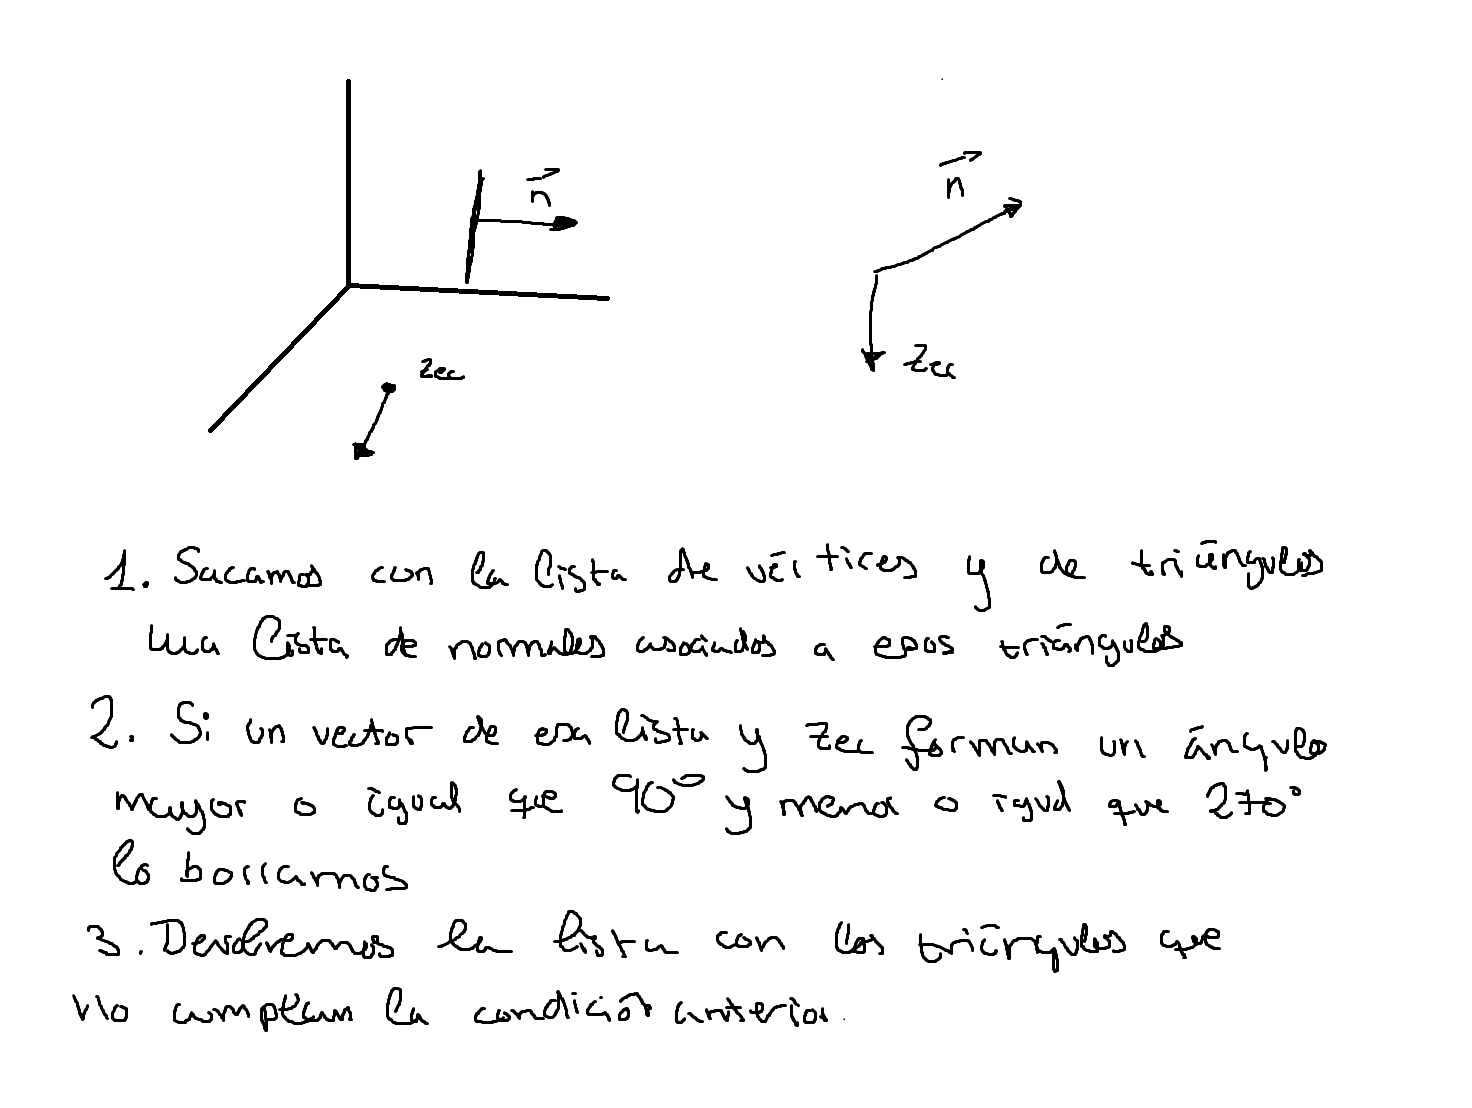 n
n
Zec
Zec
1. Sacamos con la lista de vértices y de triángulos
una lista de normales asociados a esos triángulos
2. Si un vector de esa lista y Zec forman un ángulo
mayor o igual que 90º y menor o igual que 270º
lo borramos
3. Devolvemos la lista con los triángulos que
no cumplan la condición anterior.